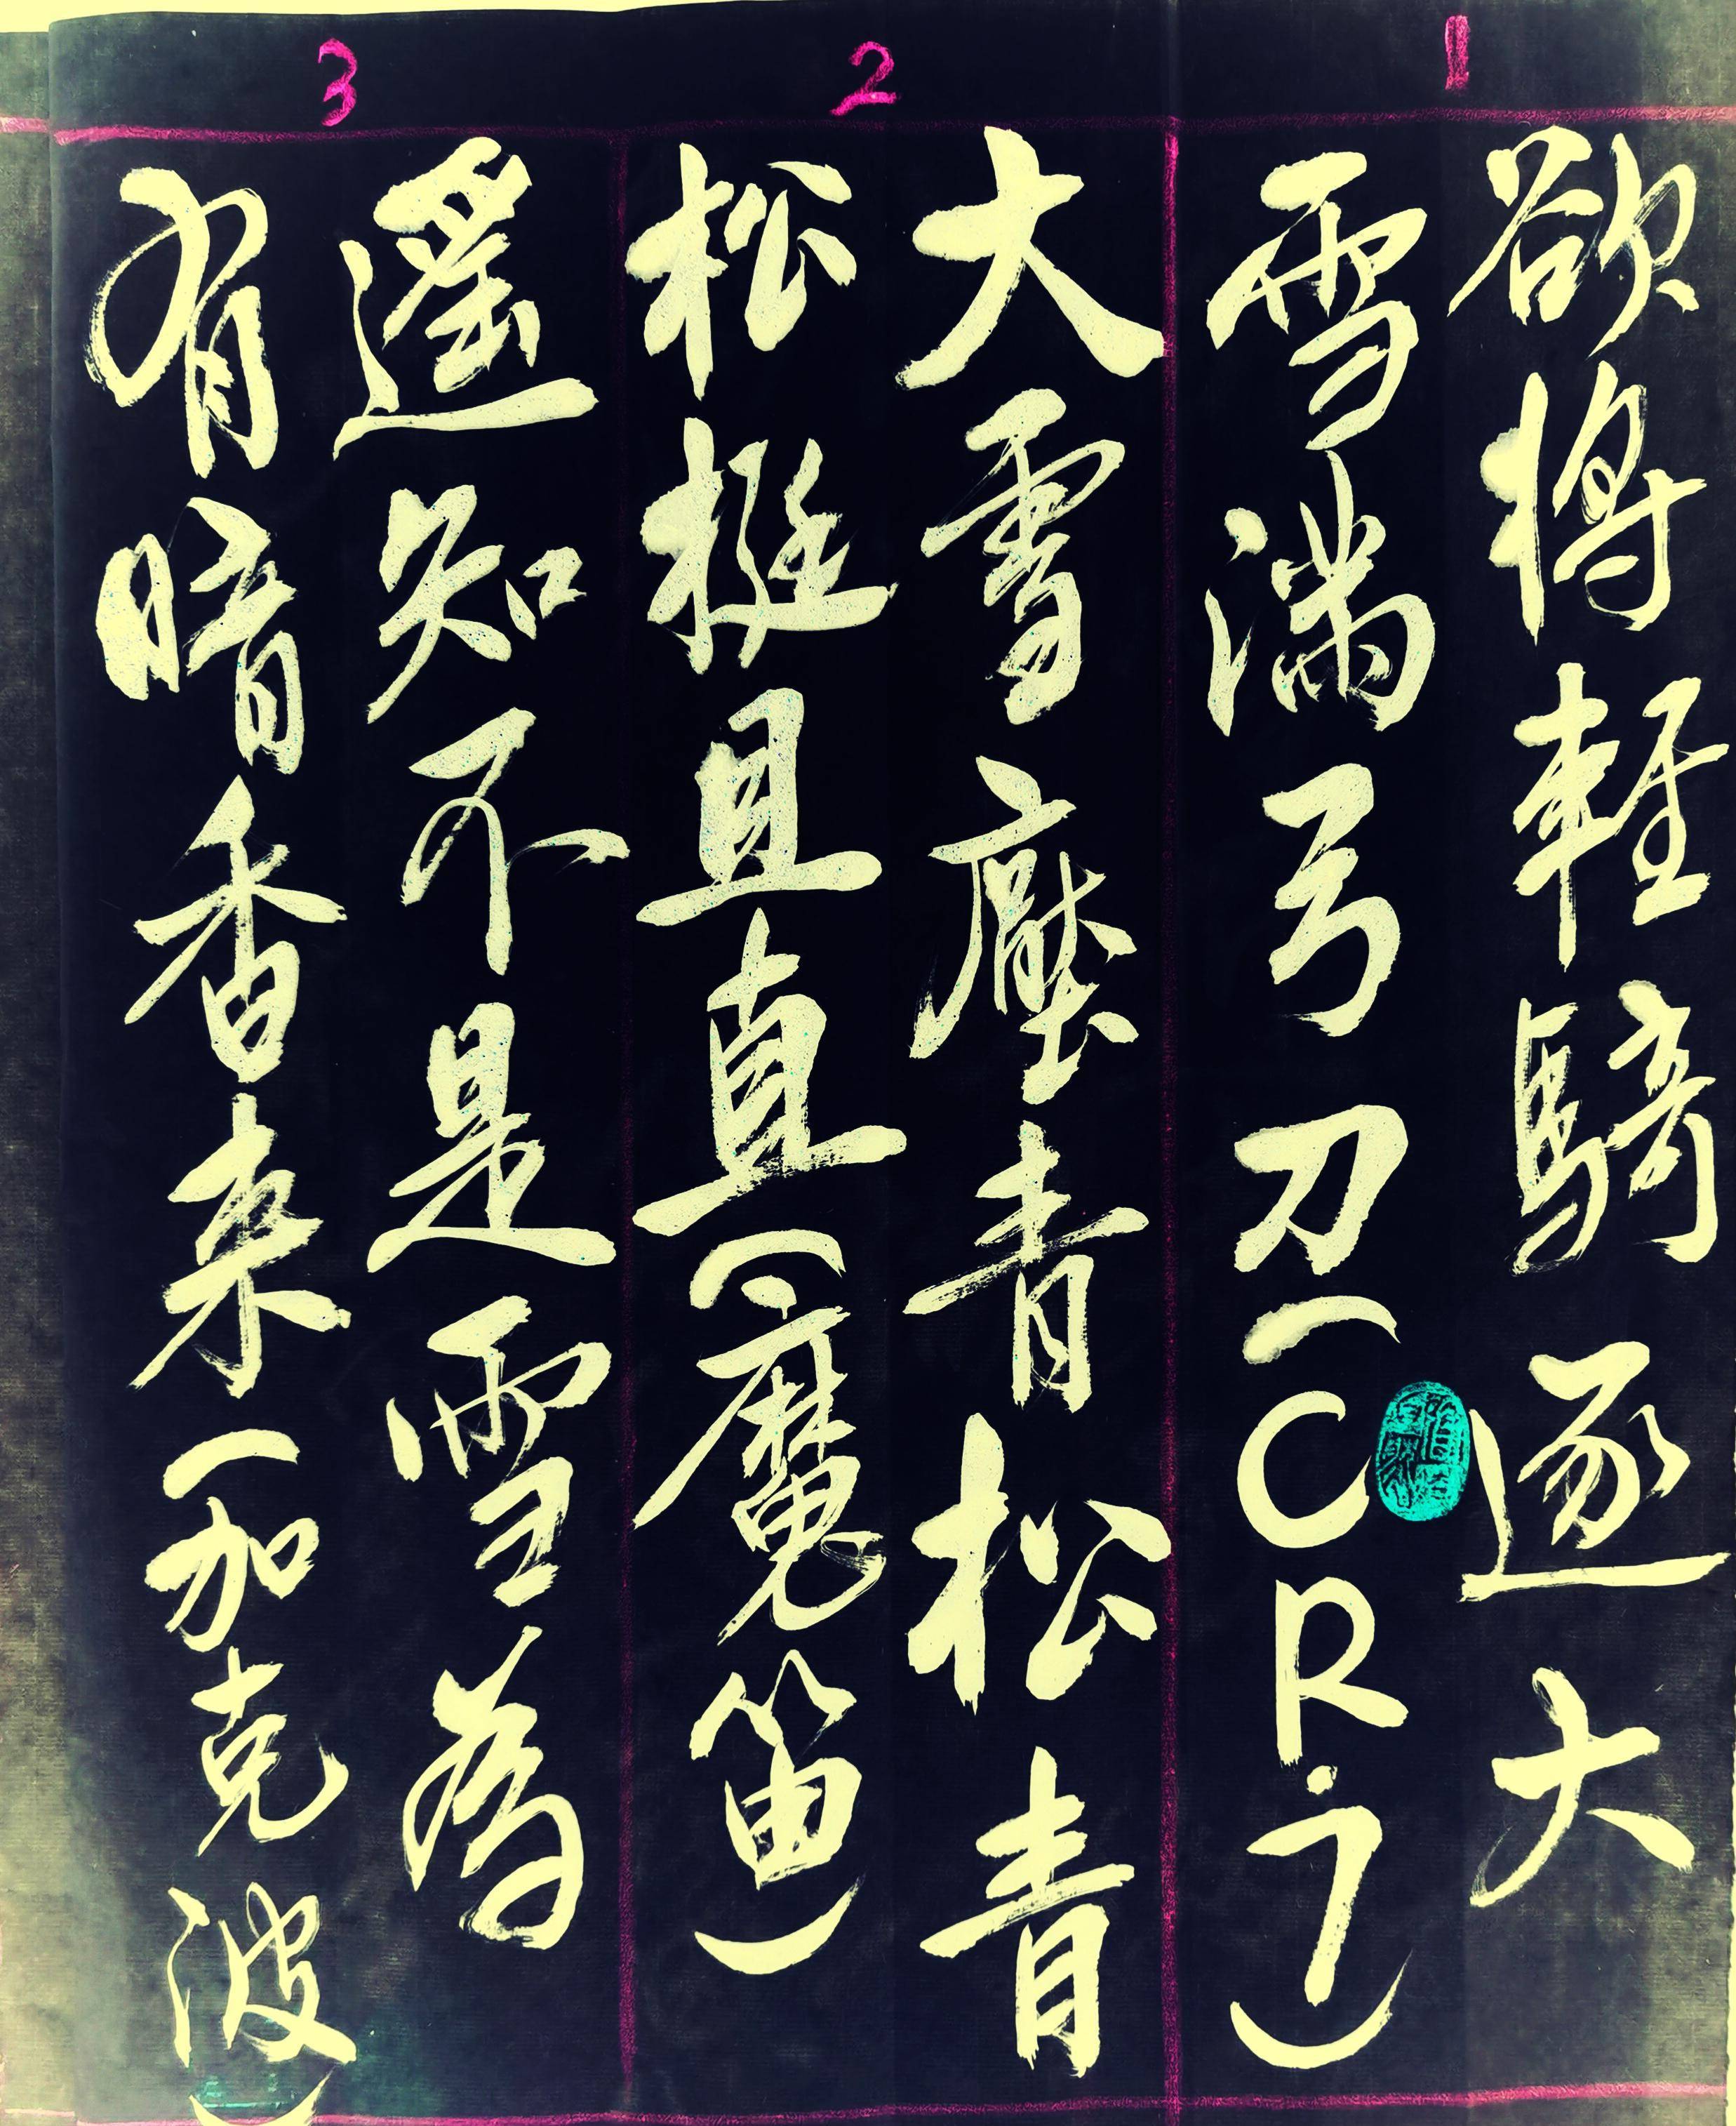 1
欲將輕騎逐大
雪滿弓刀(CR.7)
2
大雪壓青松青
松挺且直(魔笛)
3
遙知不是雪為
有暗香来(加克波)